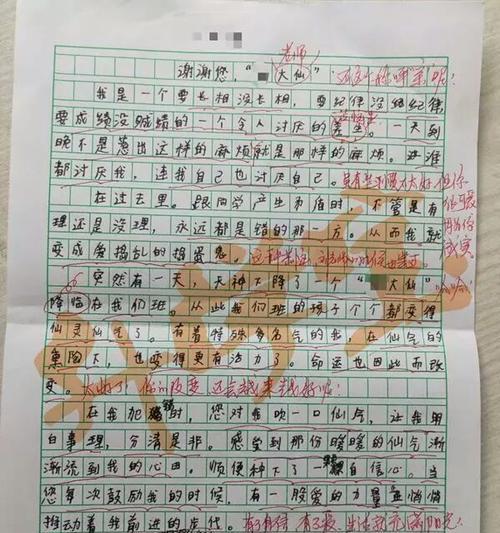 老师
谢谢您，“大仙”
我是一个要长相没长相，要纪律没纪律，
要成绩没成绩的一个令人讨厌的差生。一天到
晚不是惹出这样的麻烦就是那样的麻烦。谁谁
都讨厌我，连我自己也讨厌自己。
在过去里。跟同学产生矛盾时，不管是有
理还是没理，永远都是错的那一方。从而我就
变成爱捣乱的捣蛋鬼
突然有一天，天神下降了一个“大仙”
降临在我们班。从此我们班的孩子个个都变得
仙灵仙气了。有着特殊多名气的我，在仙气的
熏陶下，也变得更有活力了。命运也因此而改
变。太好了，你的改变
在我犯错时，您对我吹一口仙气，让我用
白事理，分清是非。感受到那份暖暖的仙气渐
渐流到我的心田。顺便种下了一颗自信心。当
您每次鼓励我的时候，有一股爱的力量在悄悄
推动着我前进的步伐。有了自信，有了爱，生活就充满阳光